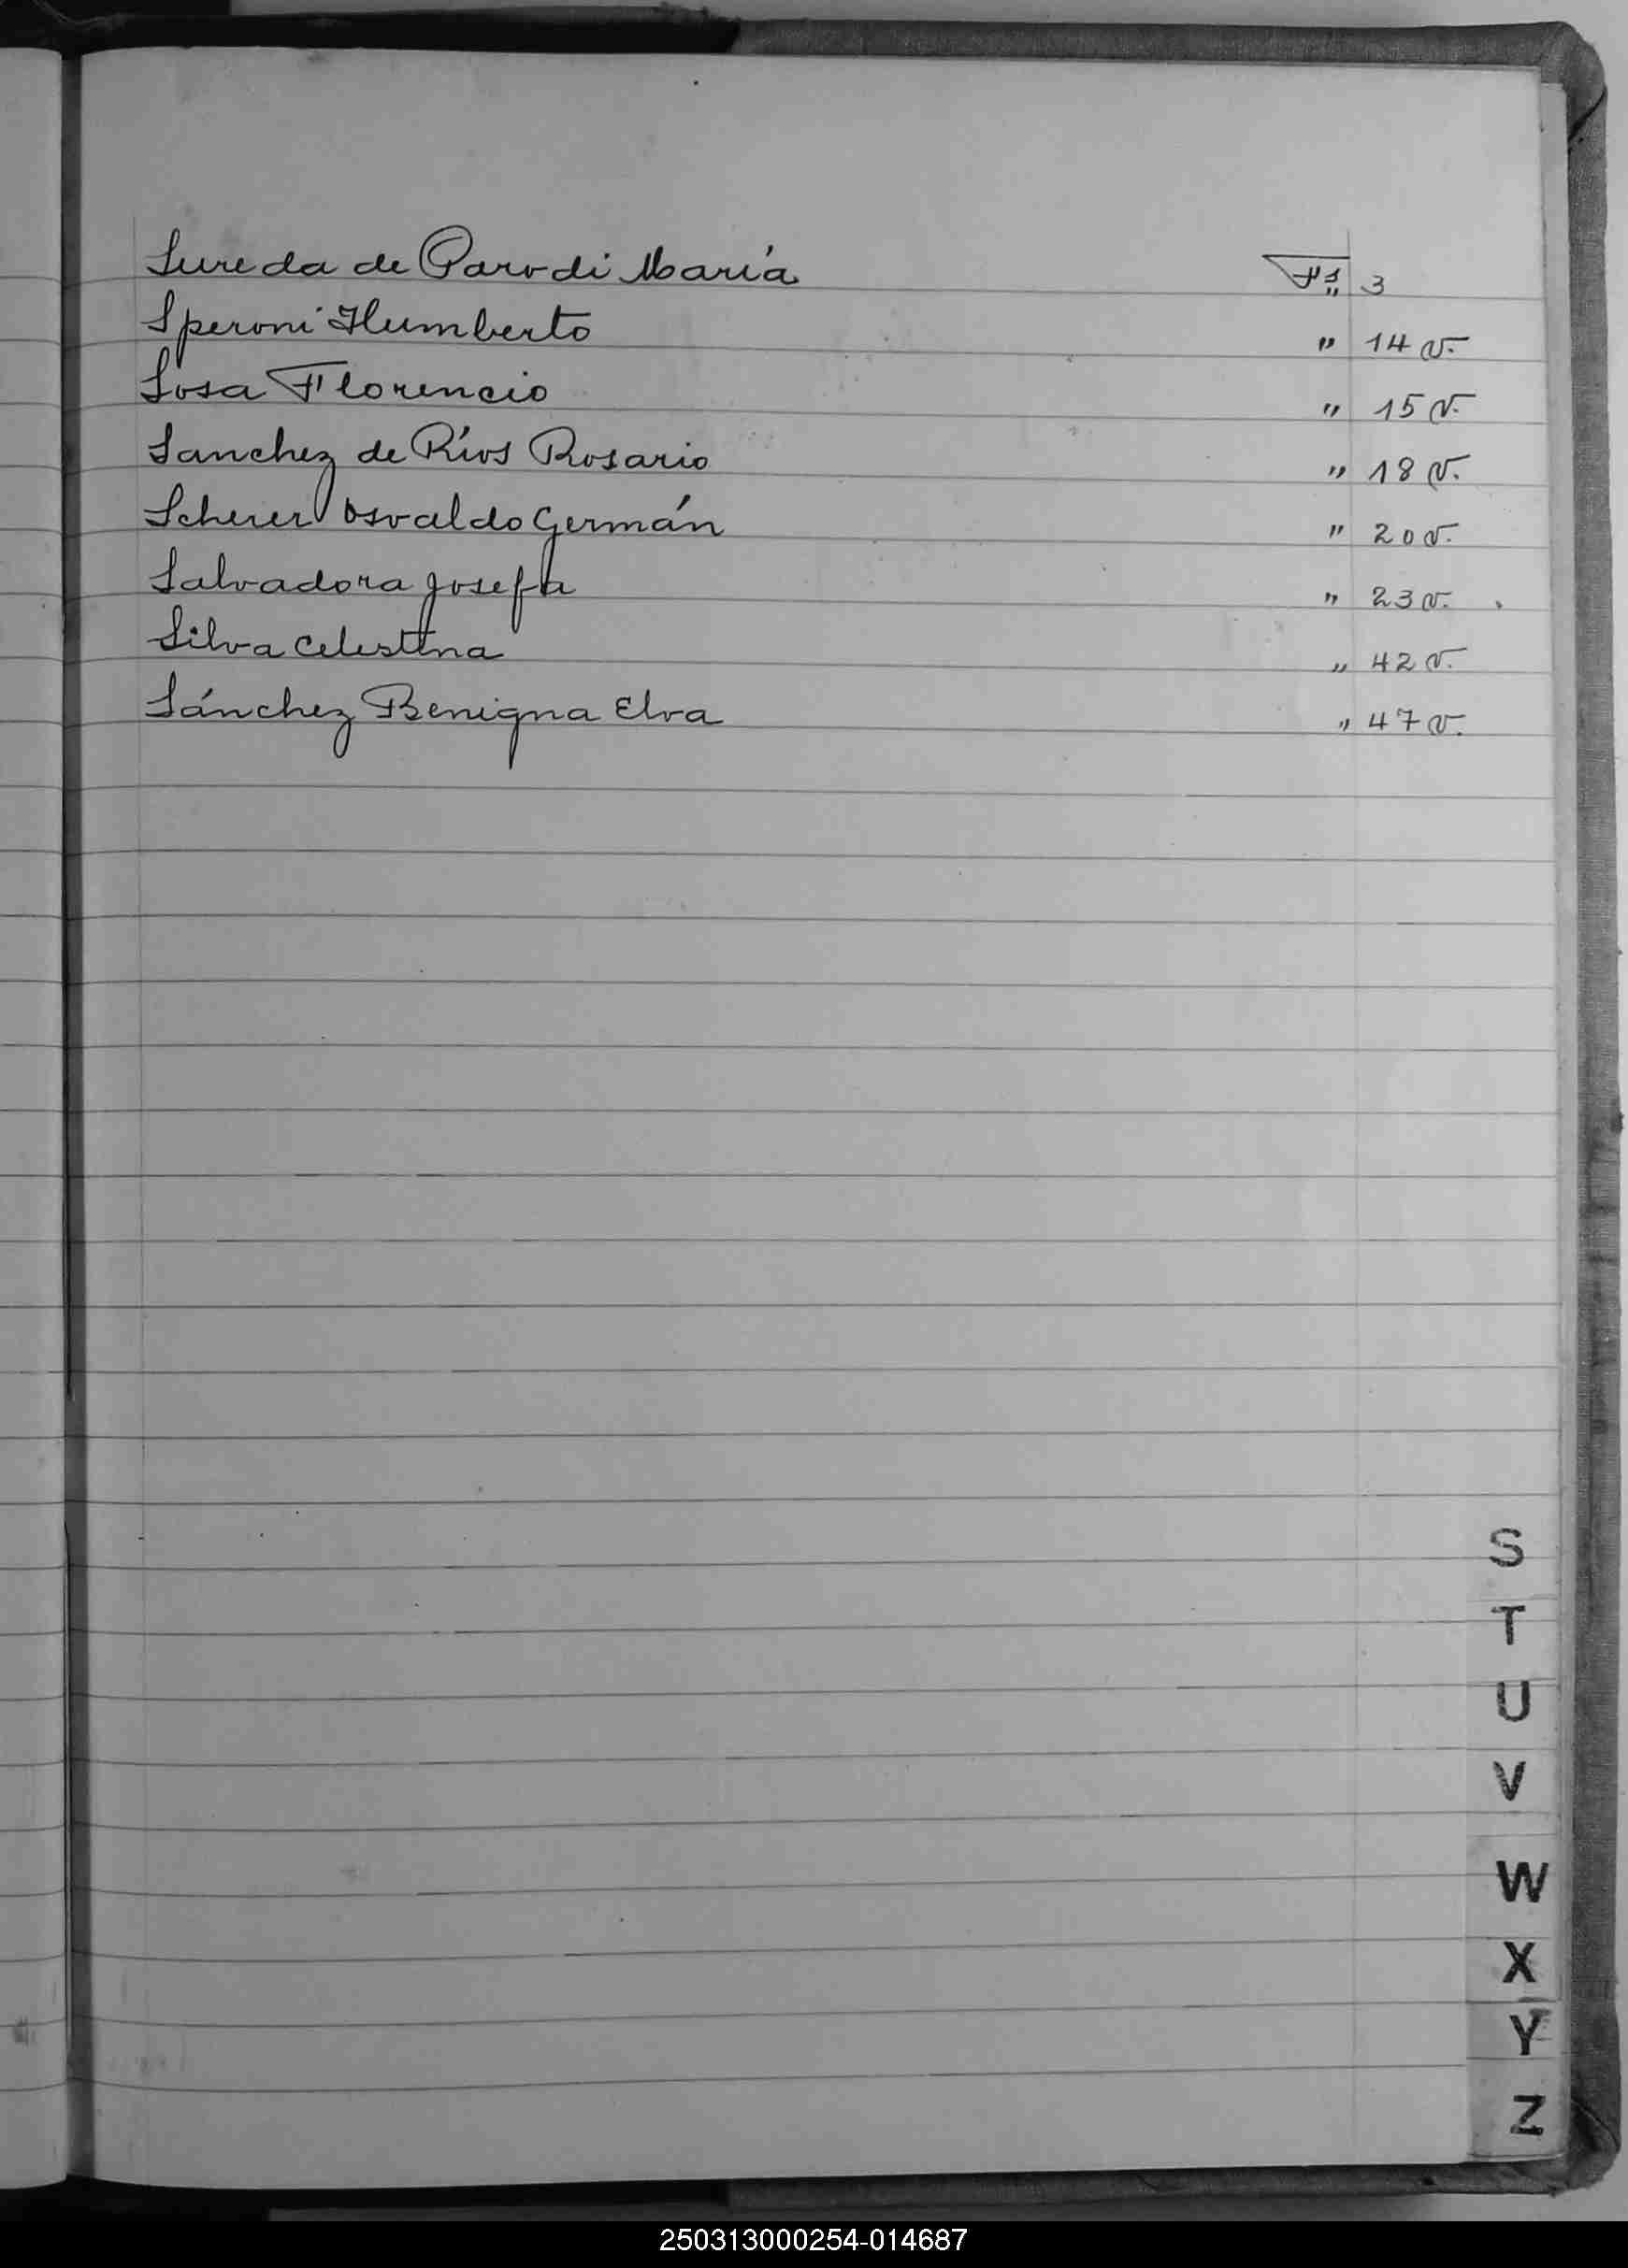 Sureda de Parodi María Fs. 3
Speroni Humberto " 14 v.
Sosa Florencio " 15 v.
Sanchez de Ríos Rosario " 18 v.
Scherer Osvaldo Germán " 20 v.
Salvadora Josefa " 23 v.
Silva Celestina " 42 v.
Sánchez Benigna Elva " 47 v.
S
T
U
V
W
X
Y
Z
250313000254-014687